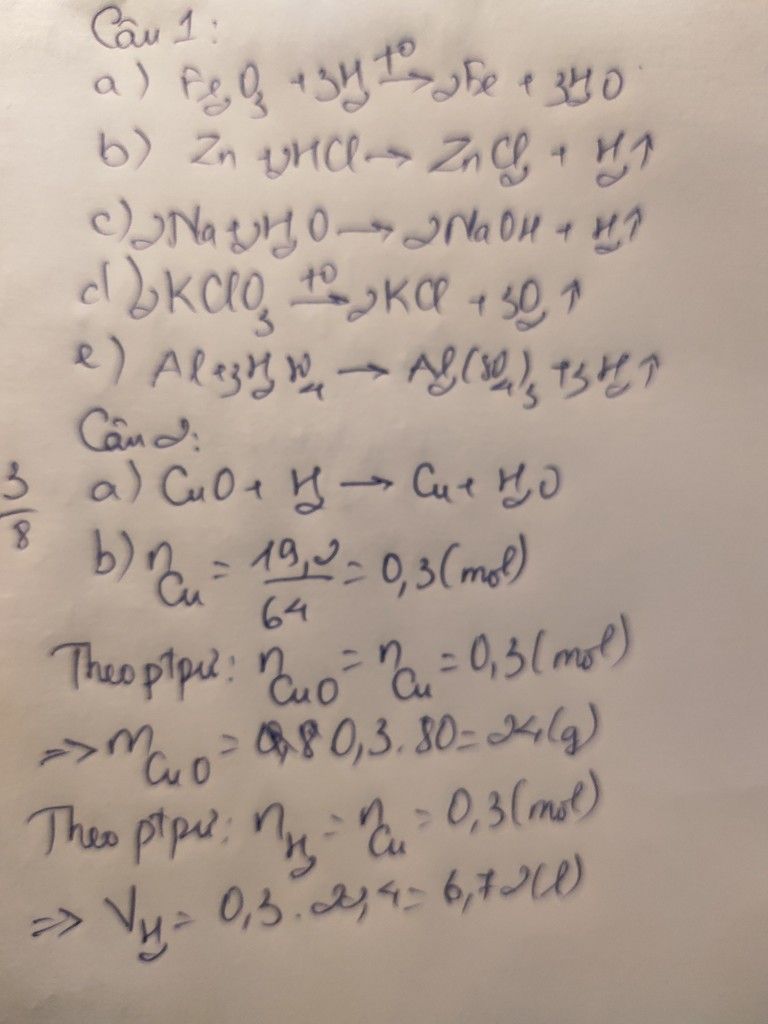 Câu 1:
a) Fe₂O₃ + 3H₂ →^{t°} 2Fe + 3H₂O
b) Zn + 2HCl → ZnCl₂ + H₂↑
c) 2Na + 2H₂O → 2NaOH + H₂↑
d) 2KClO₃ →^{t°} 2KCl + 3O₂↑
e) Al + 3H₂SO₄ → Al₂(SO₄)₃ + 3H₂↑
Câu 2:
3/8
a) CuO + H₂ → Cu + H₂O
b) n_Cu = 19,2/64 = 0,3 (mol)
Theo ptpứ: n_CuO = n_Cu = 0,3 (mol)
=> m_CuO = 0,3 . 80 = 24 (g)
Theo ptpứ: n_H₂ = n_Cu = 0,3 (mol)
=> V_H₂ = 0,3 . 22,4 = 6,72 (l)